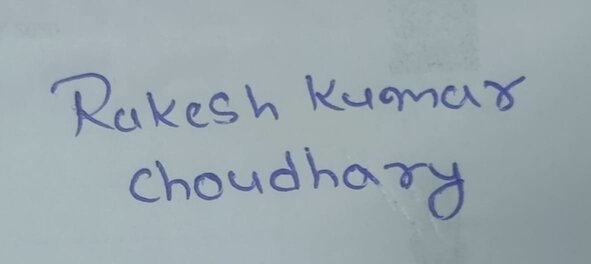 Rakesh Kumar
choudhary